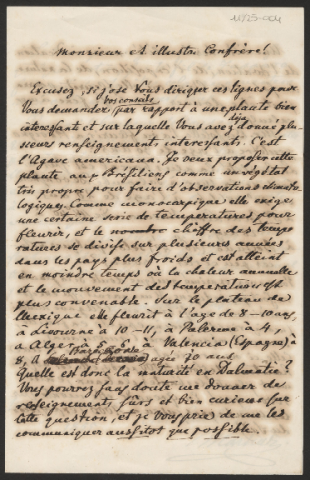 11925-004
Monsieur et illustre Confrère!
Excusez, si j'ose Vous diriger ces lignes pour
Vous demander Vos conseils par rapport à une plante bien
interessante et sur laquelle Vous avez deja donné plu-
sieurs renseignements interessants. C'est
l'Agave americana. Je veux proposer cette
plante aux Brésiliens comme un végétal
très propre pour faire d'observations climato-
logiques. Comme monocarpique elle exige
une certaine serie de temperatures pour
fleurir, et le nombre chiffre des tempe
ratures se divise sur plusieures années
dans les pays plus froids et est atteint
en moindre temps où la chaleur annuelle
et le mouvement des temperatures est
plus convenable. Sur le plateau de
Mexique elle fleurit à l'age de 8-10 ans,
à Livourne à 10-11, à Palerme à 4,
a Alger à 5-6, à Valencia (Espagne) à
8, à agée 20 ans
Quelle est donc la maturité en Dalmatie?
Vous pourrez sans doute me donner de
renseignements sûrs et bien curieux sur
cette question, et je Vous prie de me les
communiquer aussitot que possible.